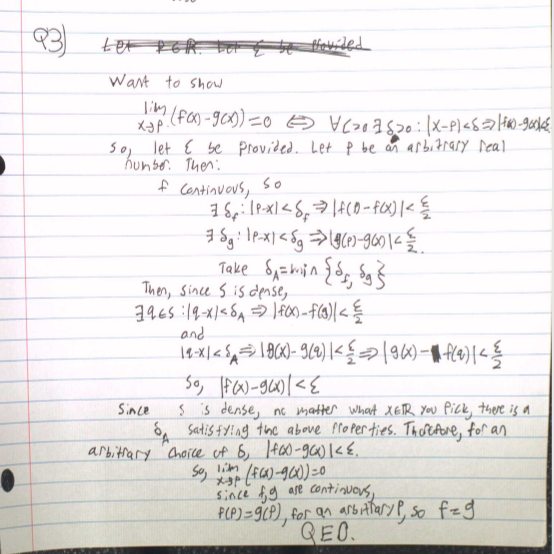 Q3) Let P∈R. Let ε be provided
Want to show
lim x→p (f(x)-g(x))=0 ⇔ ∀ε>0 ∃δ>0: |x-p|<δ⇒|f(x)-g(x)|<ε
So, let ε be provided. Let p be an arbitrary real
number. Then:
f continuous, so
∃ δf: |p-x|<δf ⇒ |f(p)-f(x)|<ε/2
∃ δg: |p-x|<δg ⇒ |g(p)-g(x)|<ε/2.
Take δA=min{δf, δg}
Then, since S is dense,
∃q∈S: |q-x|<δA ⇒ |f(x)-f(q)|<ε/2
and
|q-x|<δA ⇒ |g(x)-g(q)|<ε/2 ⇒ |g(x)-f(q)|<ε/2
So, |f(x)-g(x)|<ε
Since S is dense, no matter what x∈R you pick, there is a
δA satisfying the above properties. Therefore, for an
arbitrary choice of δ, |f(x)-g(x)|<ε.
So, lim x→p (f(x)-g(x))=0
since f,g are continuous,
f(p)=g(p), for an arbitrary p, so f=g
QED.